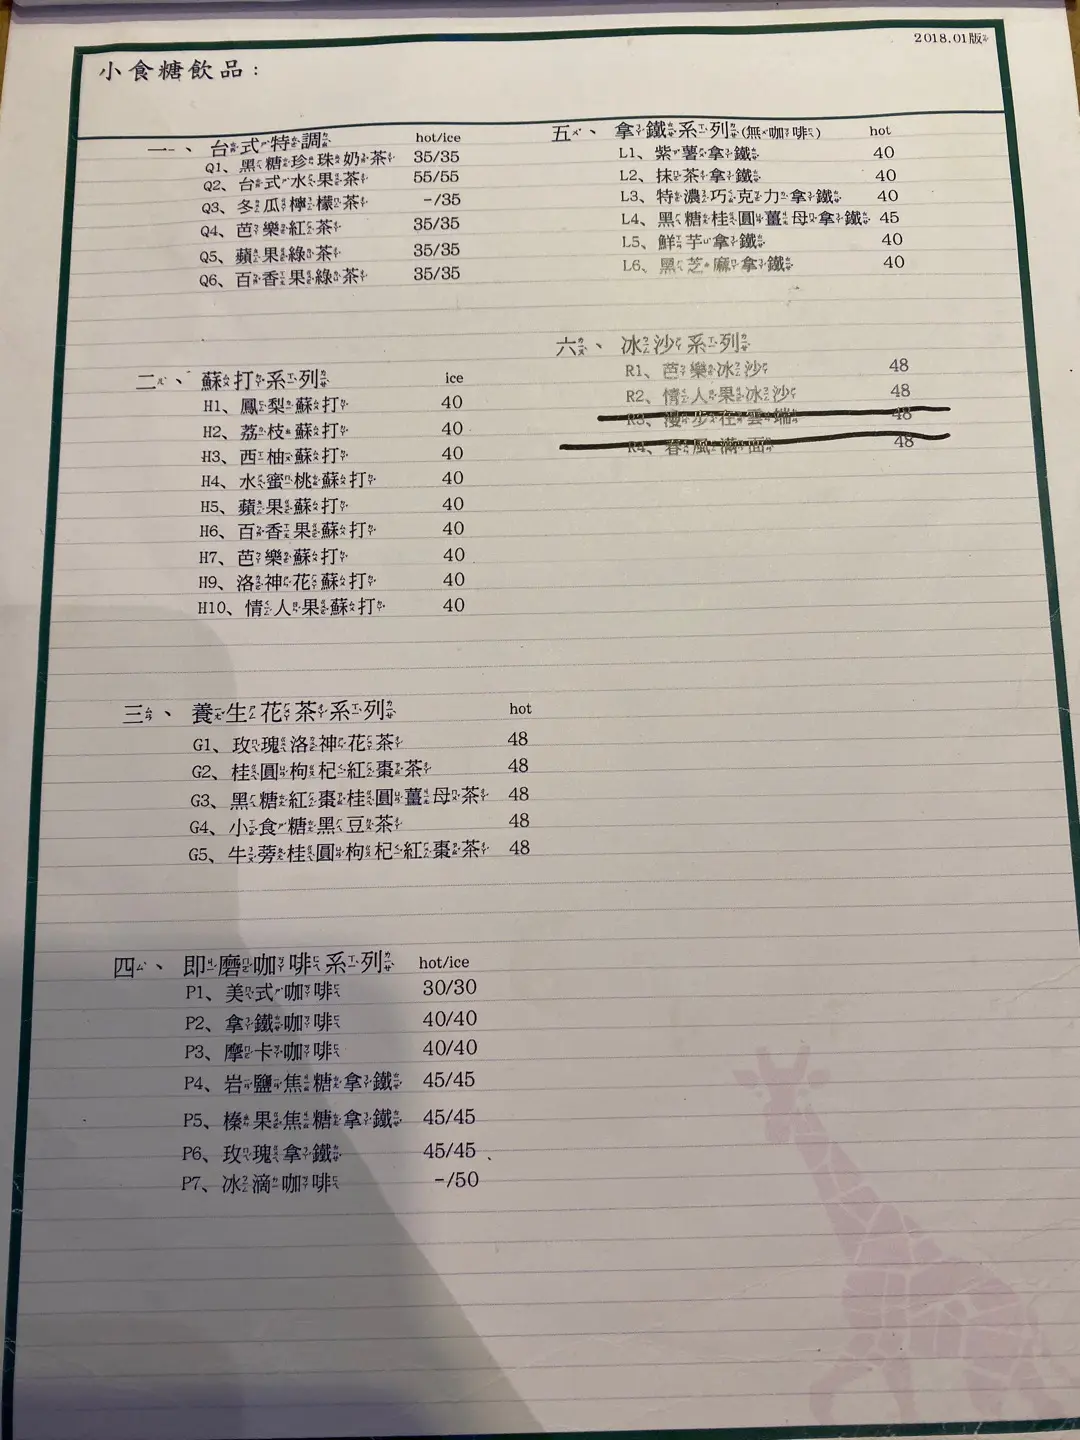 2018.01版
小食糖飲品：
一、台式特調 hot/ice
Q1、黑糖珍珠奶茶 35/35
Q2、台式水果茶 55/55
Q3、冬瓜檸檬茶 -/35
Q4、芭樂紅茶 35/35
Q5、蘋果綠茶 35/35
Q6、百香果綠茶 35/35
二、蘇打系列 ice
H1、鳳梨蘇打 40
H2、荔枝蘇打 40
H3、西柚蘇打 40
H4、水蜜桃蘇打 40
H5、蘋果蘇打 40
H6、百香果蘇打 40
H7、芭樂蘇打 40
H9、洛神花蘇打 40
H10、情人果蘇打 40
三、養生花茶系列 hot
G1、玫瑰洛神花茶 48
G2、桂圓枸杞紅棗茶 48
G3、黑糖紅棗桂圓薑母茶 48
G4、小食糖黑豆茶 48
G5、牛蒡桂圓枸杞紅棗茶 48
四、即磨咖啡系列 hot/ice
P1、美式咖啡 30/30
P2、拿鐵咖啡 40/40
P3、摩卡咖啡 40/40
P4、岩鹽焦糖拿鐵 45/45
P5、榛果焦糖拿鐵 45/45
P6、玫瑰拿鐵 45/45
P7、冰滴咖啡 -/50
五、拿鐵系列(無咖啡) hot
L1、紫薯拿鐵 40
L2、抹茶拿鐵 40
L3、特濃巧克力拿鐵 40
L4、黑糖桂圓薑母拿鐵 45
L5、鮮芋拿鐵 40
L6、黑芝麻拿鐵 40
六、冰沙系列
R1、芭樂冰沙 48
R2、情人果冰沙 48
R3、漫步在雲端 48
R4、春風滿面 48